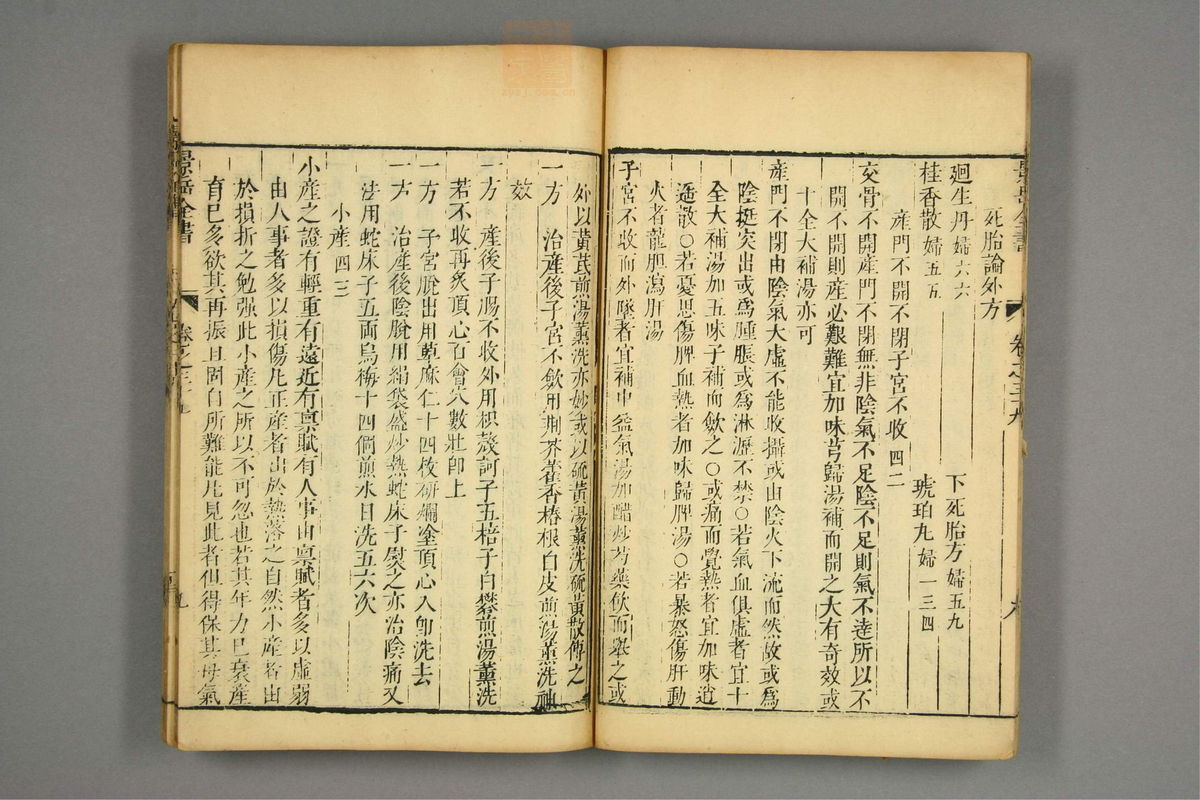 死胎論外方
廻生丹婦六六
下死胎方婦五九
桂香散婦五五
琥珀丸婦一三四
產門不開不閉子宮不收四二
交骨不開產門不閉無非陰氣不足陰不足則氣不達所以不
開不開則產必艱難宜加味芎歸湯補而開之大有奇效或
十全大補湯亦可
產門不閉由陰氣大虛不能收攝或由陰火下流而然故或為
陰挺突出或為腫脹或為淋瀝不禁○若氣血俱虛者宜十
全大補湯加五味子補而歛之○或痛而覺熱者宜加味逍
遙散○若憂思傷脾血熱者加味歸脾湯○若暴怒傷肝動
火者龍胆瀉肝湯
子宮不收而外墜者宜補中益氣湯加醋炒芍藥飲而舉之或
外以黃芪煎湯薰洗亦妙或以硫黃湯薰洗硫黃散傅之
一方 治產後子宮不歛用荆芥藿香椿根白皮煎湯薰洗神
效
一方 產後子腸不收外用枳殼訶子五棓子白礬煎湯薰洗
若不收再炙頂心百會穴數壯卽上
一方 子宮脫出用蓖麻仁十四枚研爛塗頂心入卽洗去
一方 治產後陰脫用絹袋盛炒熱蛇床子熨之亦治陰痛又
法用蛇床子五両烏梅十四個煎水日洗五六次
小產四三
小產之證有輕重有遠近有禀賦有人事由禀賦者多以虛弱
由人事者多以損傷凡正產者出於熟落之自然小產者由
於損折之勉强此小產之所以不可忽也若其年力已衰產
育已多欲其再振且固自所難能凡見此者但得保其母氣
景岳全書
卷之三十九
九